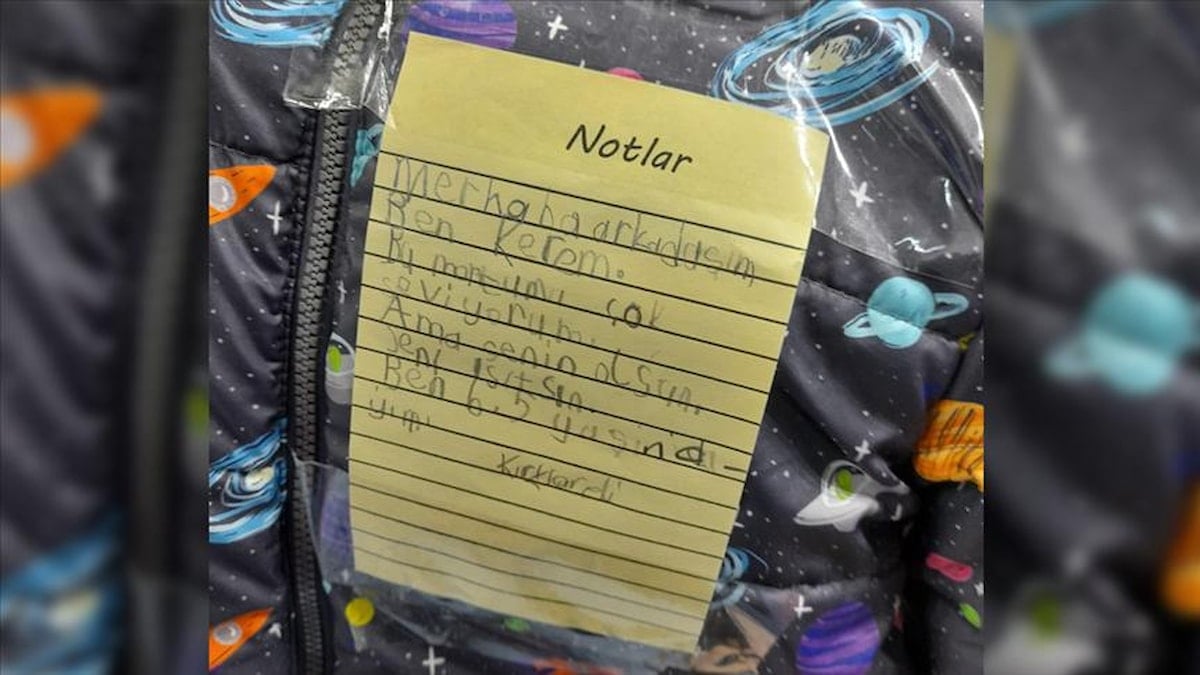 Notlar
Merhaba arkadaşım
Ben Kerem.
Bu montumu çok
seviyorum.
Ama senin olsun.
Seni ısıtsın.
Ben 6.5 yaşında-
yım.
Kırklareli